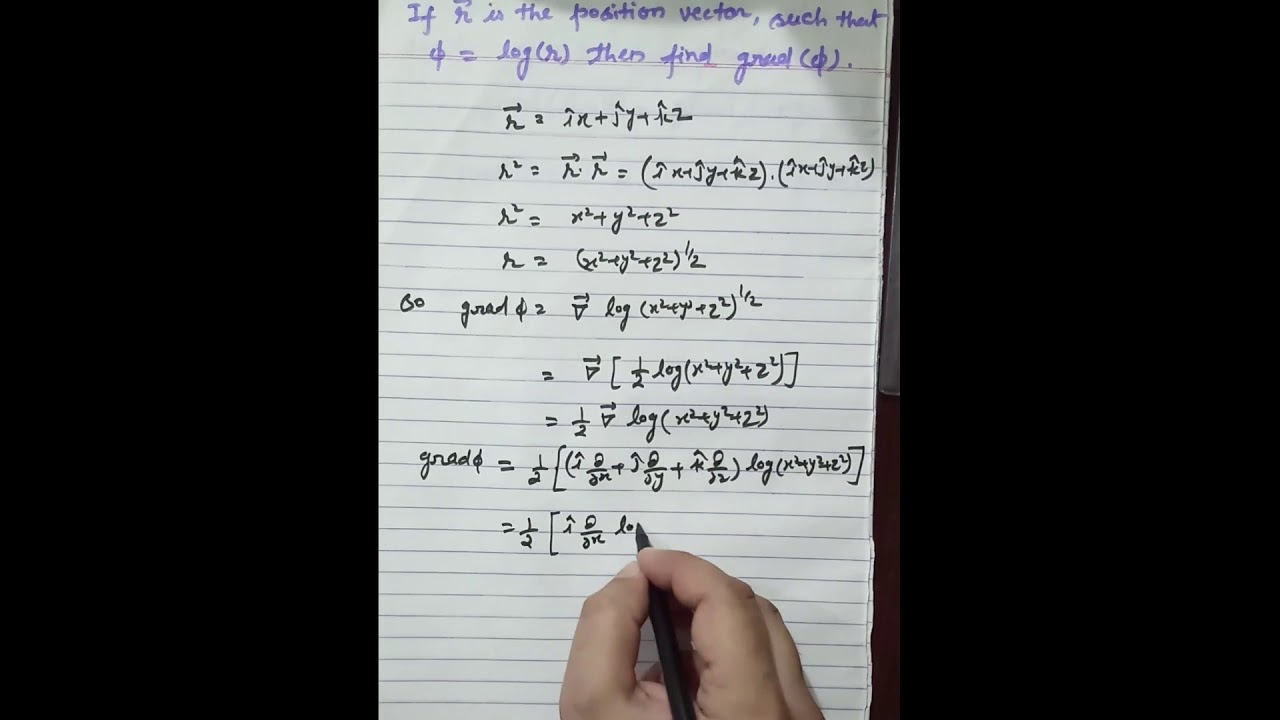 If r⃗ is the position vector, such that
ϕ = log(r) then find grad(ϕ).
r⃗ = îx+ĵy+k̂z
r² = r⃗.r⃗ = (îx+ĵy+k̂z).(îx+ĵy+k̂z)
r² = x²+y²+z²
r = (x²+y²+z²)^1/2
So grad ϕ = ∇⃗ log (x²+y²+z²)^1/2
= ∇⃗ [1/2 log(x²+y²+z²)]
= 1/2 ∇⃗ log(x²+y²+z²)
grad ϕ = 1/2 [(î ∂/∂x + ĵ ∂/∂y + k̂ ∂/∂z) log(x²+y²+z²)]
= 1/2 [î ∂/∂x lo